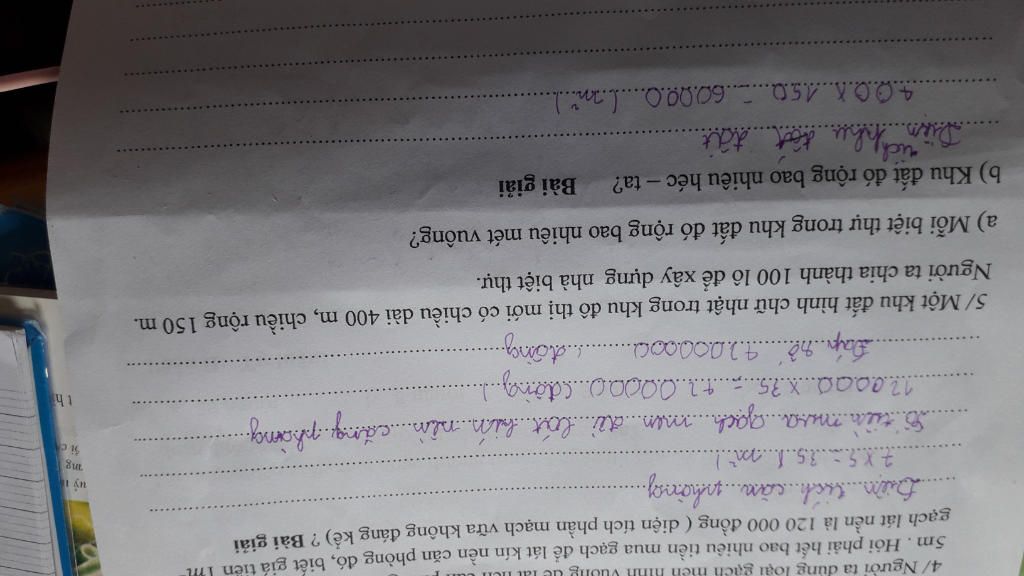 4/ Người ta dùng loại gạch men hình vuông để lát
5m . Hỏi phải hết bao nhiêu tiền mua gạch để lát kín nền căn phòng đó, biết giá tiền 1m²
gạch lát nền là 120 000 đồng ( diện tích phần mạch vữa không đáng kể) ? Bài giải
Diện tích căn phòng
7 x 5 = 35 ( m²)
Số tiền mua gạch men để lát kín nền căng phòng
120000 x 35 = 4200000 (đồng)
Đáp số 4200000 đồng
5/ Một khu đất hình chữ nhật trong khu đô thị mới có chiều dài 400 m, chiều rộng 150 m.
Người ta chia thành 100 lô để xây dựng nhà biệt thự.
a) Mỗi biệt thự trong khu đất đó rộng bao nhiêu mét vuông?
b) Khu đất đó rộng bao nhiêu héc – ta? Bài giải
Diện tích khu đất
400 x 150 = 60000 ( m²)